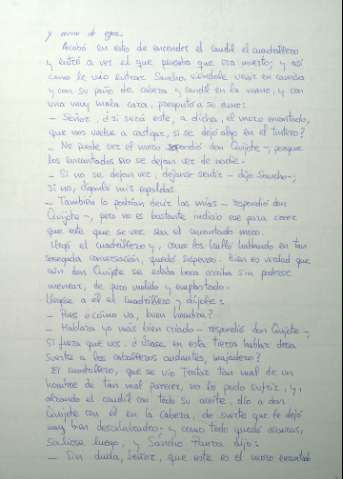 y asno de agua.
Acabó en esto de encender el candil el cuadrillero
y entró a ver el que pensaba que era muerto; y así
como le vio entrar Sancho viéndole venir en camisa
y con su paño de cabeza y candil en la mano, y con
una muy mala cara, preguntó a su amo:
— Señor, ¿si será este, a dicha, el moro encantado,
que nos vuelve a castigar, si se dejó algo en el tintero?
— No puede ser el moro respondió don Quijote —, porque
los encantados no se dejan ver de nadie.
— Si no se dejan ver, déjanse sentir — dijo Sancho —;
si no, díganlo mis espaldas.
— También lo podrían decir las mías — respondió don
Quijote —, pero no es bastante indicio ese para creer
que este que se ve sea el encantado moro.
Llegó el cuadrillero y, como los halló hablando en tan
sosegada conversación, quedó suspenso. Bien es verdad que
aún don Quijote se estaba boca arriba sin poderse
menear, de puro molido y emplastado.
Llegóse a él el cuadrillero y díjole:
— Pues ¿cómo va, buen hombre?
— Hablara yo más bien criado — respondió don Quijote —,
si fuera que vos. ¿Úsase en esta tierra hablar desa
suerte a los caballeros andantes, majadero?
El cuadrillero, que se vio tratar tan mal de un
hombre de tan mal parecer, no lo pudo sufrir, y,
alzando el candil con todo su aceite, dio a don
Quijote con él en la cabeza, de suerte que le dejó
muy bien descalabrado; y como todo quedó a oscuras,
salióse luego, y Sancho Panza dijo:
— Sin duda, señor, que este es el moro encantado